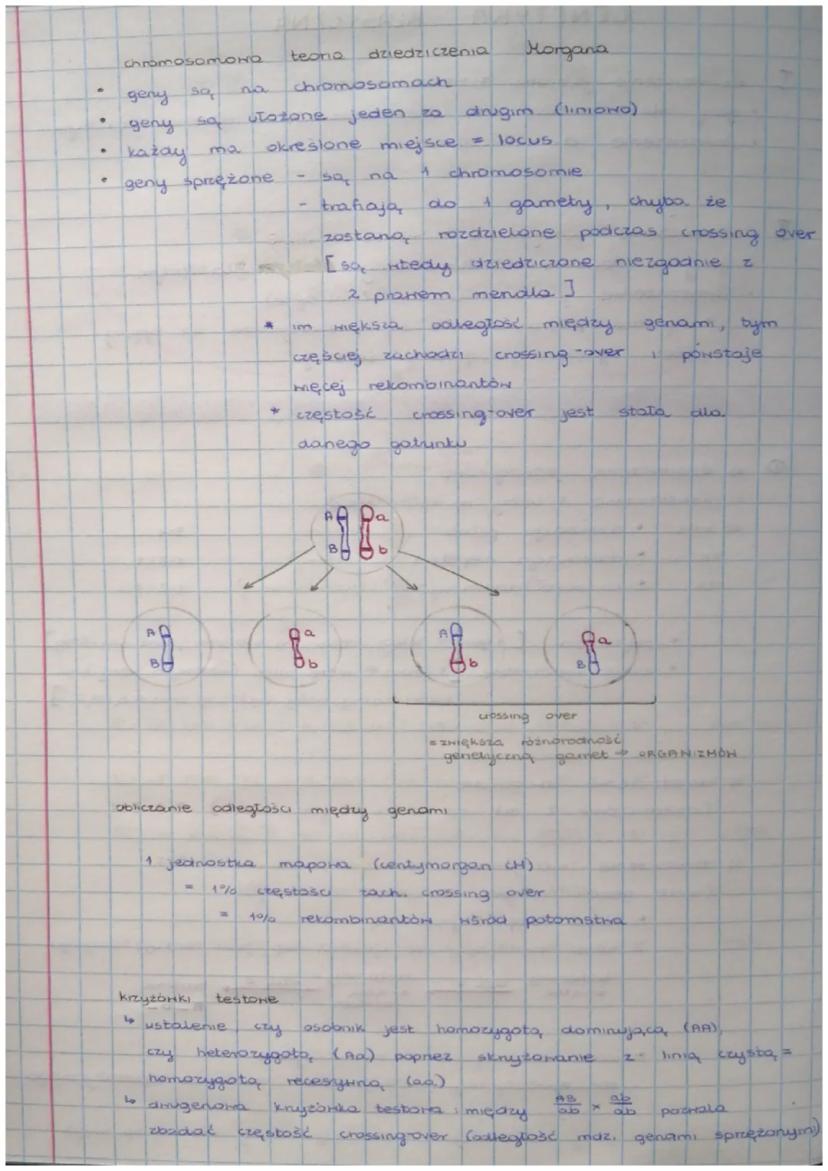 chromosomowa teoria dziedziczenia Morgana
• geny są na chromosomach
• geny są ułożone jeden za drugim (liniowo)
• każdy ma określone miejsce = locus
• geny sprzężone - są na 1 chromosomie
- trafiają do 1 gamety, chyba że
zostaną rozdzielone podczas crossing over
[są wtedy dziedziczone niezgodnie z
2 prawem mendla]
* im większa odległość między genami, tym
częściej zachodzi crossing-over i powstaje
więcej rekombinantów
* częstość crossing-over jest stała dla
danego gatunku
A a
B b
A a A a
B b b B
crossing over
= zwiększa różnorodność
genetyczną gamet → ORGANIZMÓW
obliczanie odległości między genami
1 jednostka mapowa (centymorgan cM)
= 1% częstości zach. crossing over
= 1% rekombinantów wśród potomstwa
krzyżówki testowe
↳ ustalenie czy osobnik jest homozygotą dominującą (AA),
czy heterozygotą (Aa) poprzez skrzyżowanie z linią czystą =
homozygotą recesywną (aa)
↳ dwugenowa krzyżówka testowa między AB/ab × ab/ab pozwala
zbadać częstość crossing-over (odległość mdz. genami sprzężonymi)